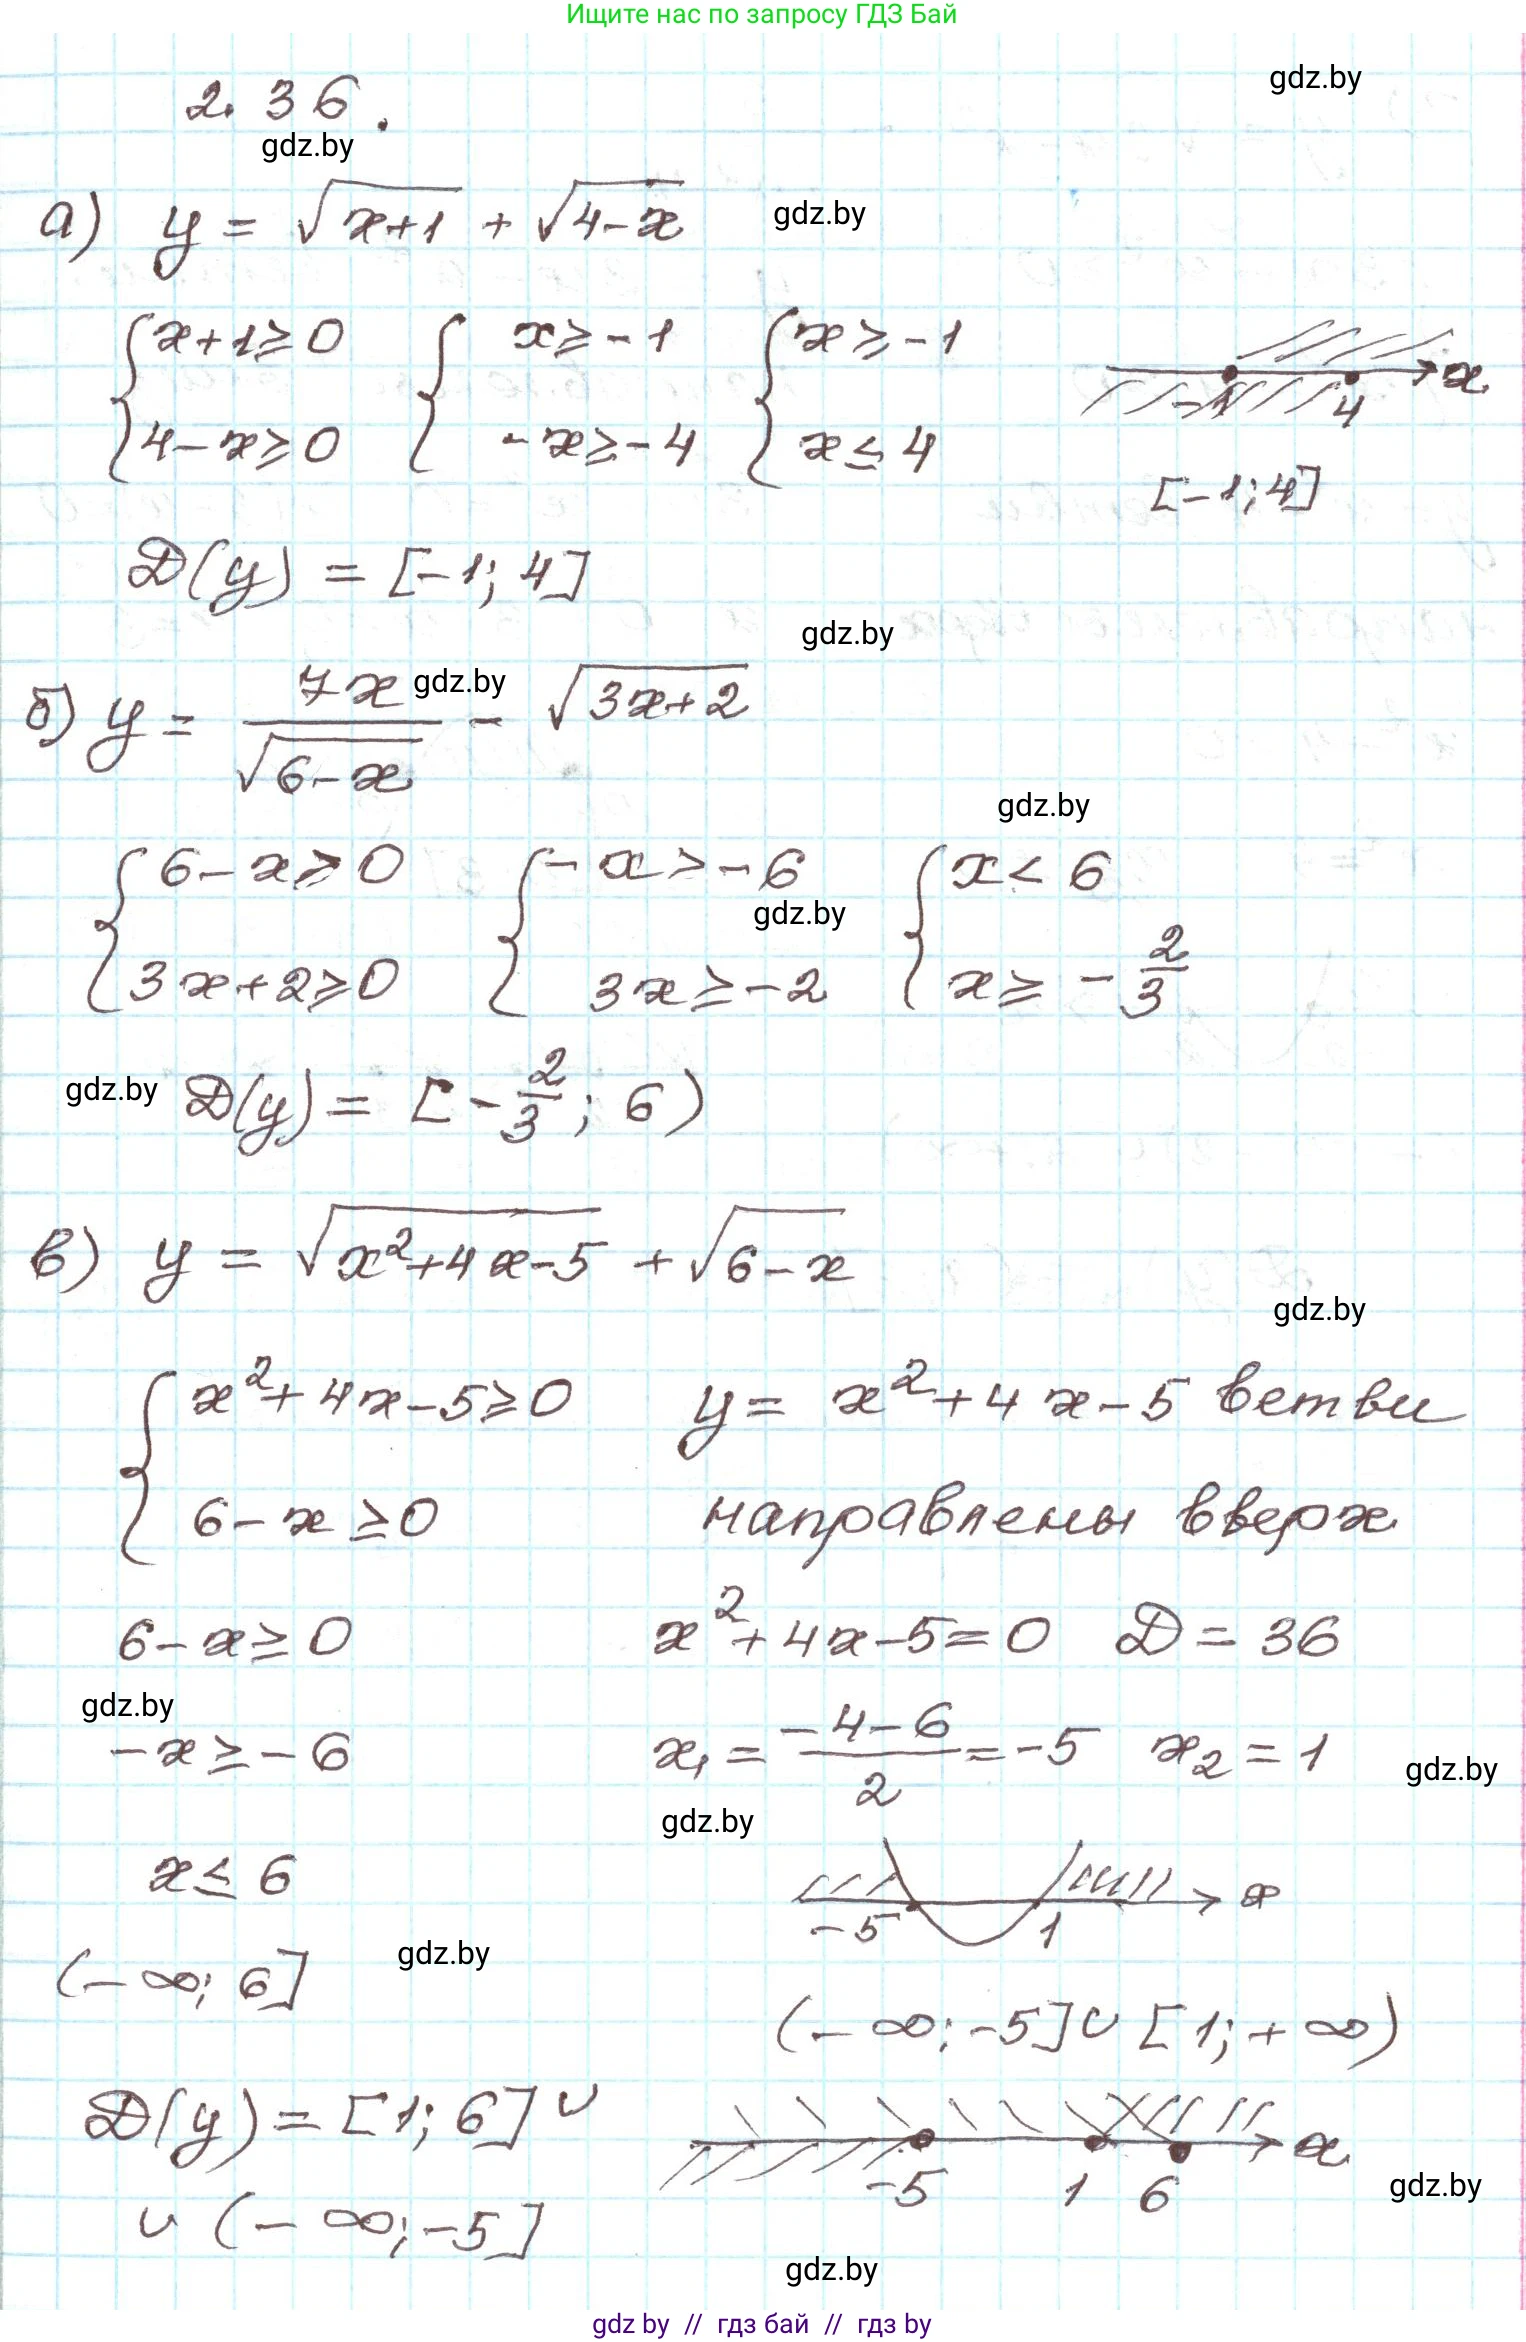 Ищите нас по запросу ГДЗ Бай
gdz.by
2.36.
gdz.by
а) y = √(x+1) + √(4-x)
gdz.by
{x+1≥0 {x≥-1 {x≥-1
4-x≥0 -x≥-4 x≤4
-1 4 x
[-1;4]
D(y) = [-1; 4]
gdz.by
б) y = 7x/√(6-x) - √(3x+2)
gdz.by
gdz.by
{6-x>0 {-x>-6 {x<6
gdz.by
3x+2≥0 3x≥-2 x≥-2/3
gdz.by
D(y) = [-2/3; 6)
в) y = √(x²+4x-5) + √(6-x)
gdz.by
{x²+4x-5≥0 y = x²+4x-5 ветви
6-x≥0 направлены вверх
6-x≥0 x²+4x-5=0 D=36
gdz.by
-x≥-6 x₁ = (-4-6)/2 = -5 x₂ = 1
gdz.by
gdz.by
x≤6
-5 1 x
(-∞; 6]
gdz.by
(-∞;-5]∪[1;+∞)
D(y) = [1; 6] ∪
-5 1 6 x
gdz.by
∪ (-∞;-5]
gdz.by
gdz by // гдз бай // гдз by